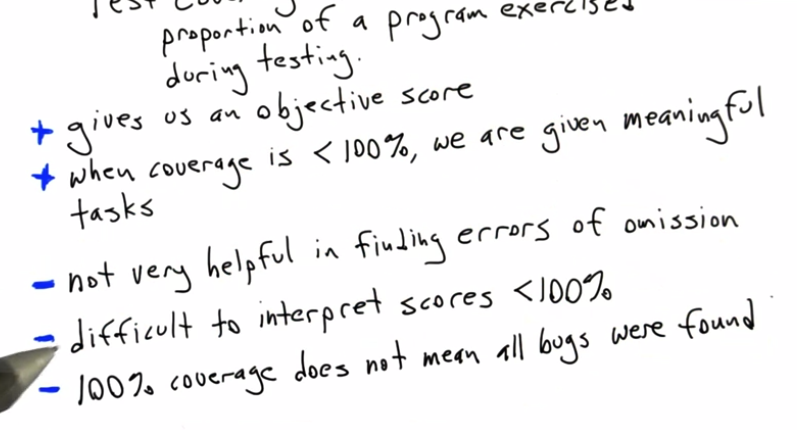 Test Coverage
proportion of a program exercised
during testing.
+ gives us an objective score
+ when coverage is < 100%, we are given meaningful
tasks
- not very helpful in finding errors of omission
- difficult to interpret scores < 100%
- 100% coverage does not mean all bugs were found